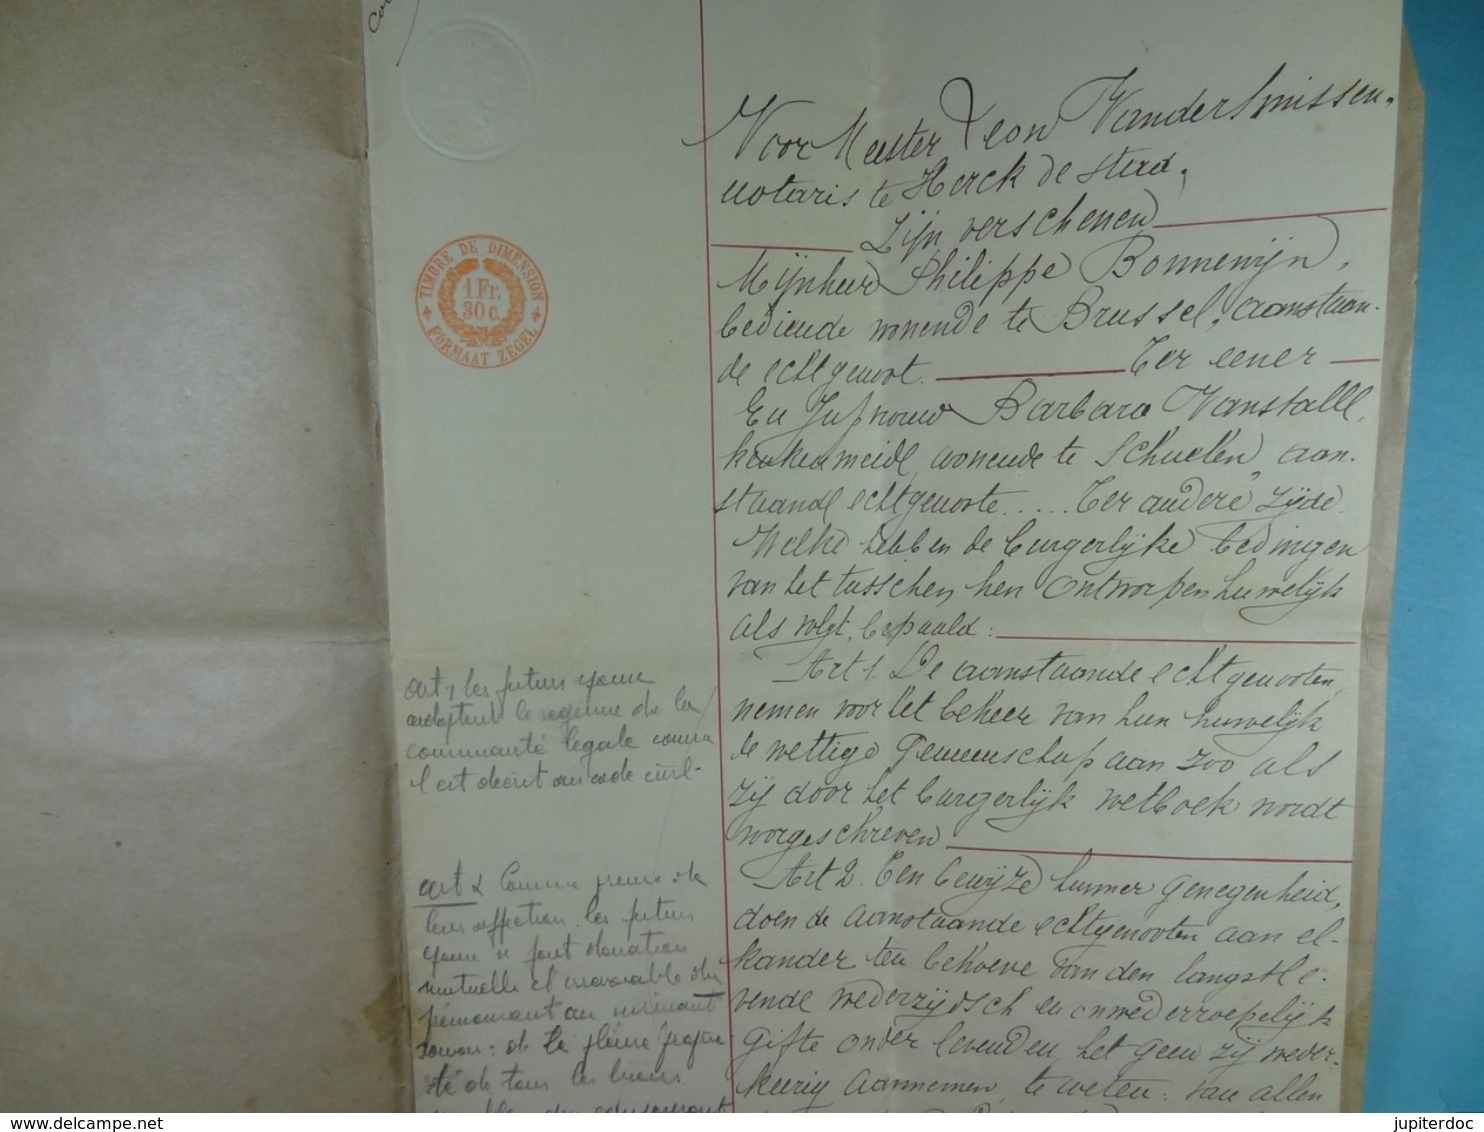 TIMBRE DE DIMENSION
1 Fr.
30 c.
FORMAAT ZEGEL
Voor Meester Leon Vandersmissen,
notaris te Herck de Stad,
Zijn verschenen
Mijnheer Philippe Bonnewijn,
bediende wonende te Brussel, aanstaan-
de echtgenoot. Ter eener
En Jufvrouw Barbara Vanstalle,
keukenmeid, wonende te Schuelen, aan-
staande echtgenoote..... Ter andere zijde.
Welke hebben de burgerlijke bedingen
van het tusschen hen ontworpen huwelijk
als volgt, bepaald:
Art 1. De aanstaande echtgenooten,
nemen voor het beheer van hun huwelijk
de wettige gemeenschap aan zoo als
zij door het burgerlijk wetboek wordt
voorgeschreven
Art 2. Een bewijze hunner genegenheid,
doen de aanstaande echtgenooten aan el-
kander ten behoeve van den langstle-
vende wederzijdsch en onwederroepelijk
gifte onder levenden, het geen zij weder-
keerig aannemen, te weten: van allen
art 1 les futurs époux
adoptent le régime de la
communauté légale comme
il est décrit au code civil.
art 2 Comme preuve de
leur affection, les futurs
époux se font donation
mutuelle et irrévocable du
prémourant au survivant
savoir: de la pleine proprié-
té de tous les biens
meubles du prémourant
jupiterdoc